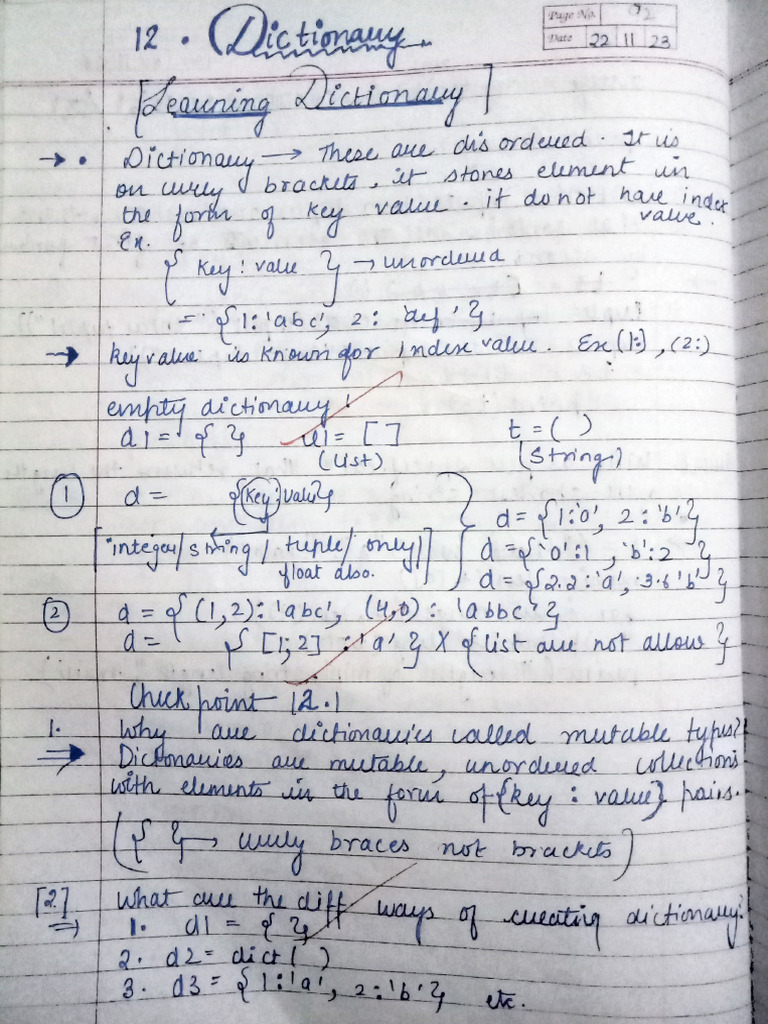 12. Dictionary
Page No. 92
Date 22 11 23
[Learning Dictionary]
→ • Dictionary → These are disordered. It is
on curly brackets, it stores element in
the form of key value. it do not have index
value.
Ex.
{ key : value } → unordered
= {1:'abc', 2: 'def'}
→ key value is known for index value. Ex (1:), (2:)
empty dictionary!
d1 = { } l1 = [ ] t = ( )
(list) (string)
① d = {key: value}
[integer/string/ tuple/ only]
float also.
d = {1:'a', 2:'b'}
d = {'a':1, 'b':2 }
d = {2.2:'a', 3.6'b'}
② d = {(1,2):'abc', (4,5): 'abbc'}
d = { [1,2] :'a' } X {list are not allow}
Check point 12.1
1. Why are dictionaries called mutable types?
⇒ Dictonaries are mutable, unordered collections
with elements in the form of {key : value} pairs.
({ } → curly braces not brackets)
[2] What are the diff ways of creating dictionary:
⇒ 1. d1 = { }
2. d2 = dict ( )
3. d3 = {1:'a', 2:'b'} etc.